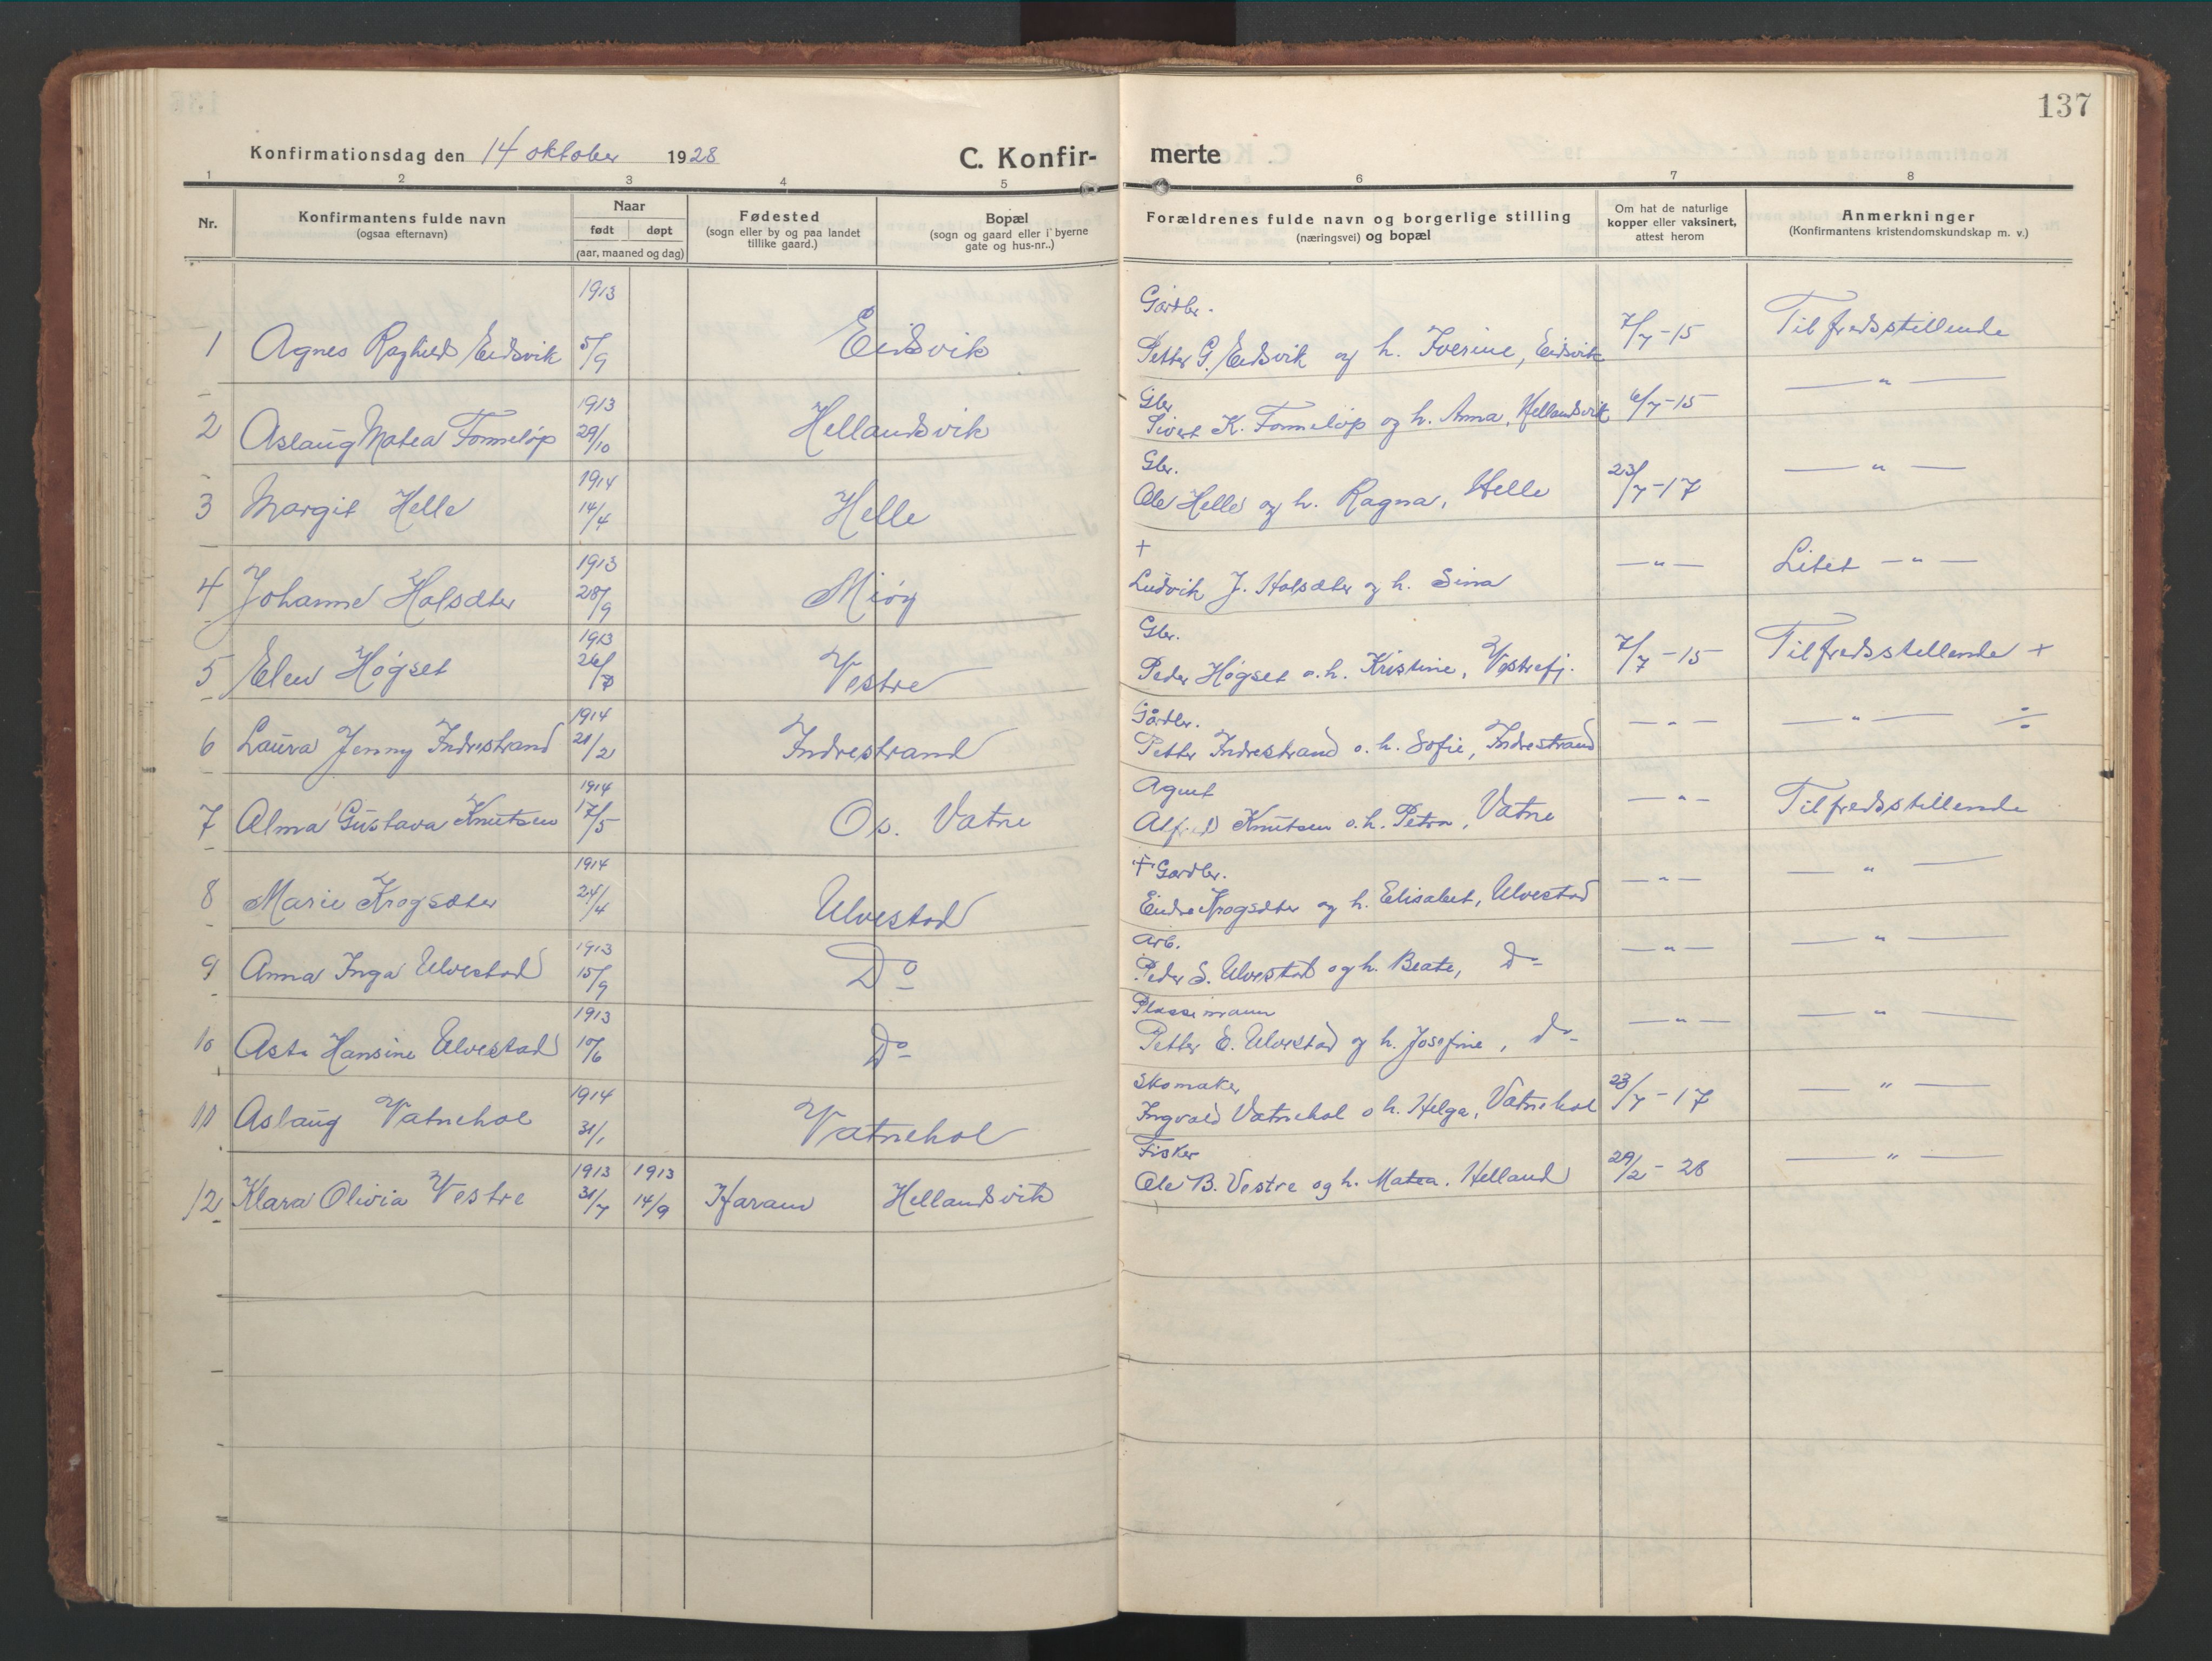 137
Konfirmationsdag den 14 oktober 1928 C. Konfir- merte
1 2 3 4 5 6 7 8
Nr. Konfirmantens fulde navn (ogsaa efternavn) Naar født døpt (aar, maaned og dag) Fødested (sogn eller by og paa landet tillike gaard.) Bopæl (sogn og gaard eller i byerne gate og hus-nr..) Forældrenes fulde navn og borgerlige stilling (næringsvei) og bopæl Om hat de naturlige kopper eller vaksinert, attest herom Anmerkninger (Konfirmantens kristendomskundskap m. v.)
1913 Gardbr.
1 Agnes Raghild Eidsvik 5/9 Eidsvik Petter G. Eidsvik og h. Iverine, Eidsvik 7/7-15 Tilfredsstillende
1913 Gbr
2 Aslaug Matea Tomeløp 29/10 Hellandsvik Sivert K. Tomeløp og h. Anna, Hellandsvik 6/7-15 — " —
1914 Gbr.
3 Margit Helle 14/4 Helle Ole Helle og h. Ragna, Helle 23/7-17 — " —
1913 +
4 Johanne Holsæter 28/9 Miøy Ludvik J. Holsæter og h. Sina — " — Litet — " —
1913 Gbr.
5 Elen Høgset 26/7 Vestre Peder Høgset o. h. Kristine, Vestrefj. 7/7-15 Tilfredsstillende +
1914 Gårdbr.
6 Laura Jenny Indrestrand 21/2 Indrestrand Petter Indrestrand o. h. Sofie, Indrestrand — " — — " — ÷
1914 Agent
7 Alma Gustava Knutsen 17/5 Os. Vatne Alfred Knutsen o. h. Petra, Vatne — " — Tilfredsstillende
1914 + Gardbr.
8 Marie Krogsæter 24/4 Ulvestad Eindre Krogsæter og h. Elisabet, Ulvestad — " — — " —
1913 Arb.
9 Anna Inga Ulvestad 15/9 Do Peder S. Ulvestad og h. Beate, Do — " — — " —
1913 Plassemann
10 Asta Hansine Ulvestad 10/6 Do Petter E. Ulvestad og h. Josefine, Do — " — — " —
1914 Skomaker
11 Aslaug Vatnehol 31/1 Vatnehol Ingvald Vatnehol o h. Helga, Vatnehol 23/7-17 — " —
1913 1913 Fisker
12 Klara Olivia Vestre 31/7 14/9 Haram Hellandsvik Ole B. Vestre og h. Matea. Helland 29/2-28 — " —